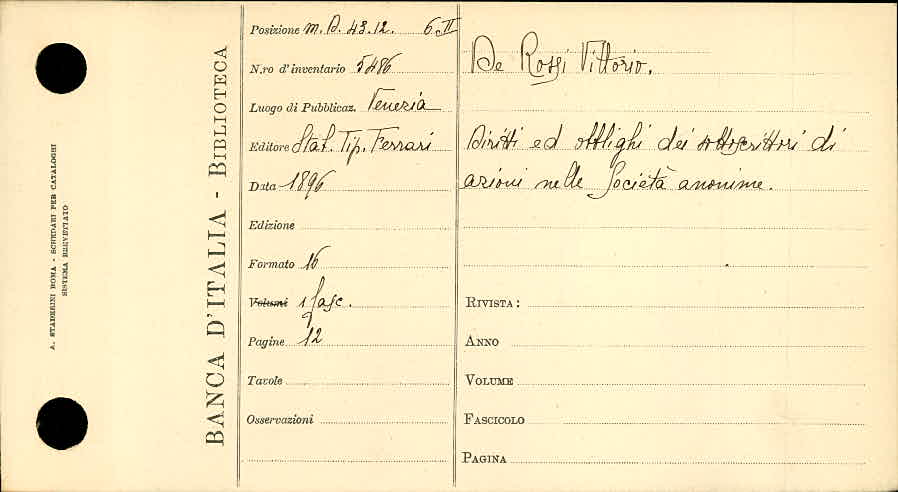 A. STADERINI ROMA - SCHEDARI PER CATALOGHI
SISTEMA BREVETTATO
BANCA D'ITALIA - BIBLIOTECA
Posizione M. D. 43.12. 6 II
N.ro d'inventario 5486
Luogo di Pubblicaz. Venezia
Editore Stab. Tip. Ferrari
Data 1896
Edizione
Formato 16
Volumi 1 fasc.
Pagine 12
Tavole
Osservazioni
De Rossi Vittorio.
Diritti ed obblighi dei sottoscrittori di
azioni nelle Società anonime.
RIVISTA:
ANNO
VOLUME
FASCICOLO
PAGINA